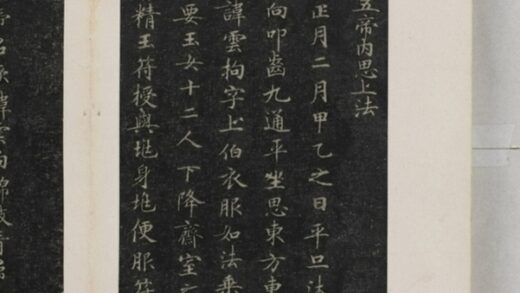 五帝內思上法
正月二月甲乙之日平旦沐
向叩齒九通平坐思東方東
諱雲拘字上伯衣服如法乘
要玉女十二人下降齋室之
精玉符授與垗身垗便服符